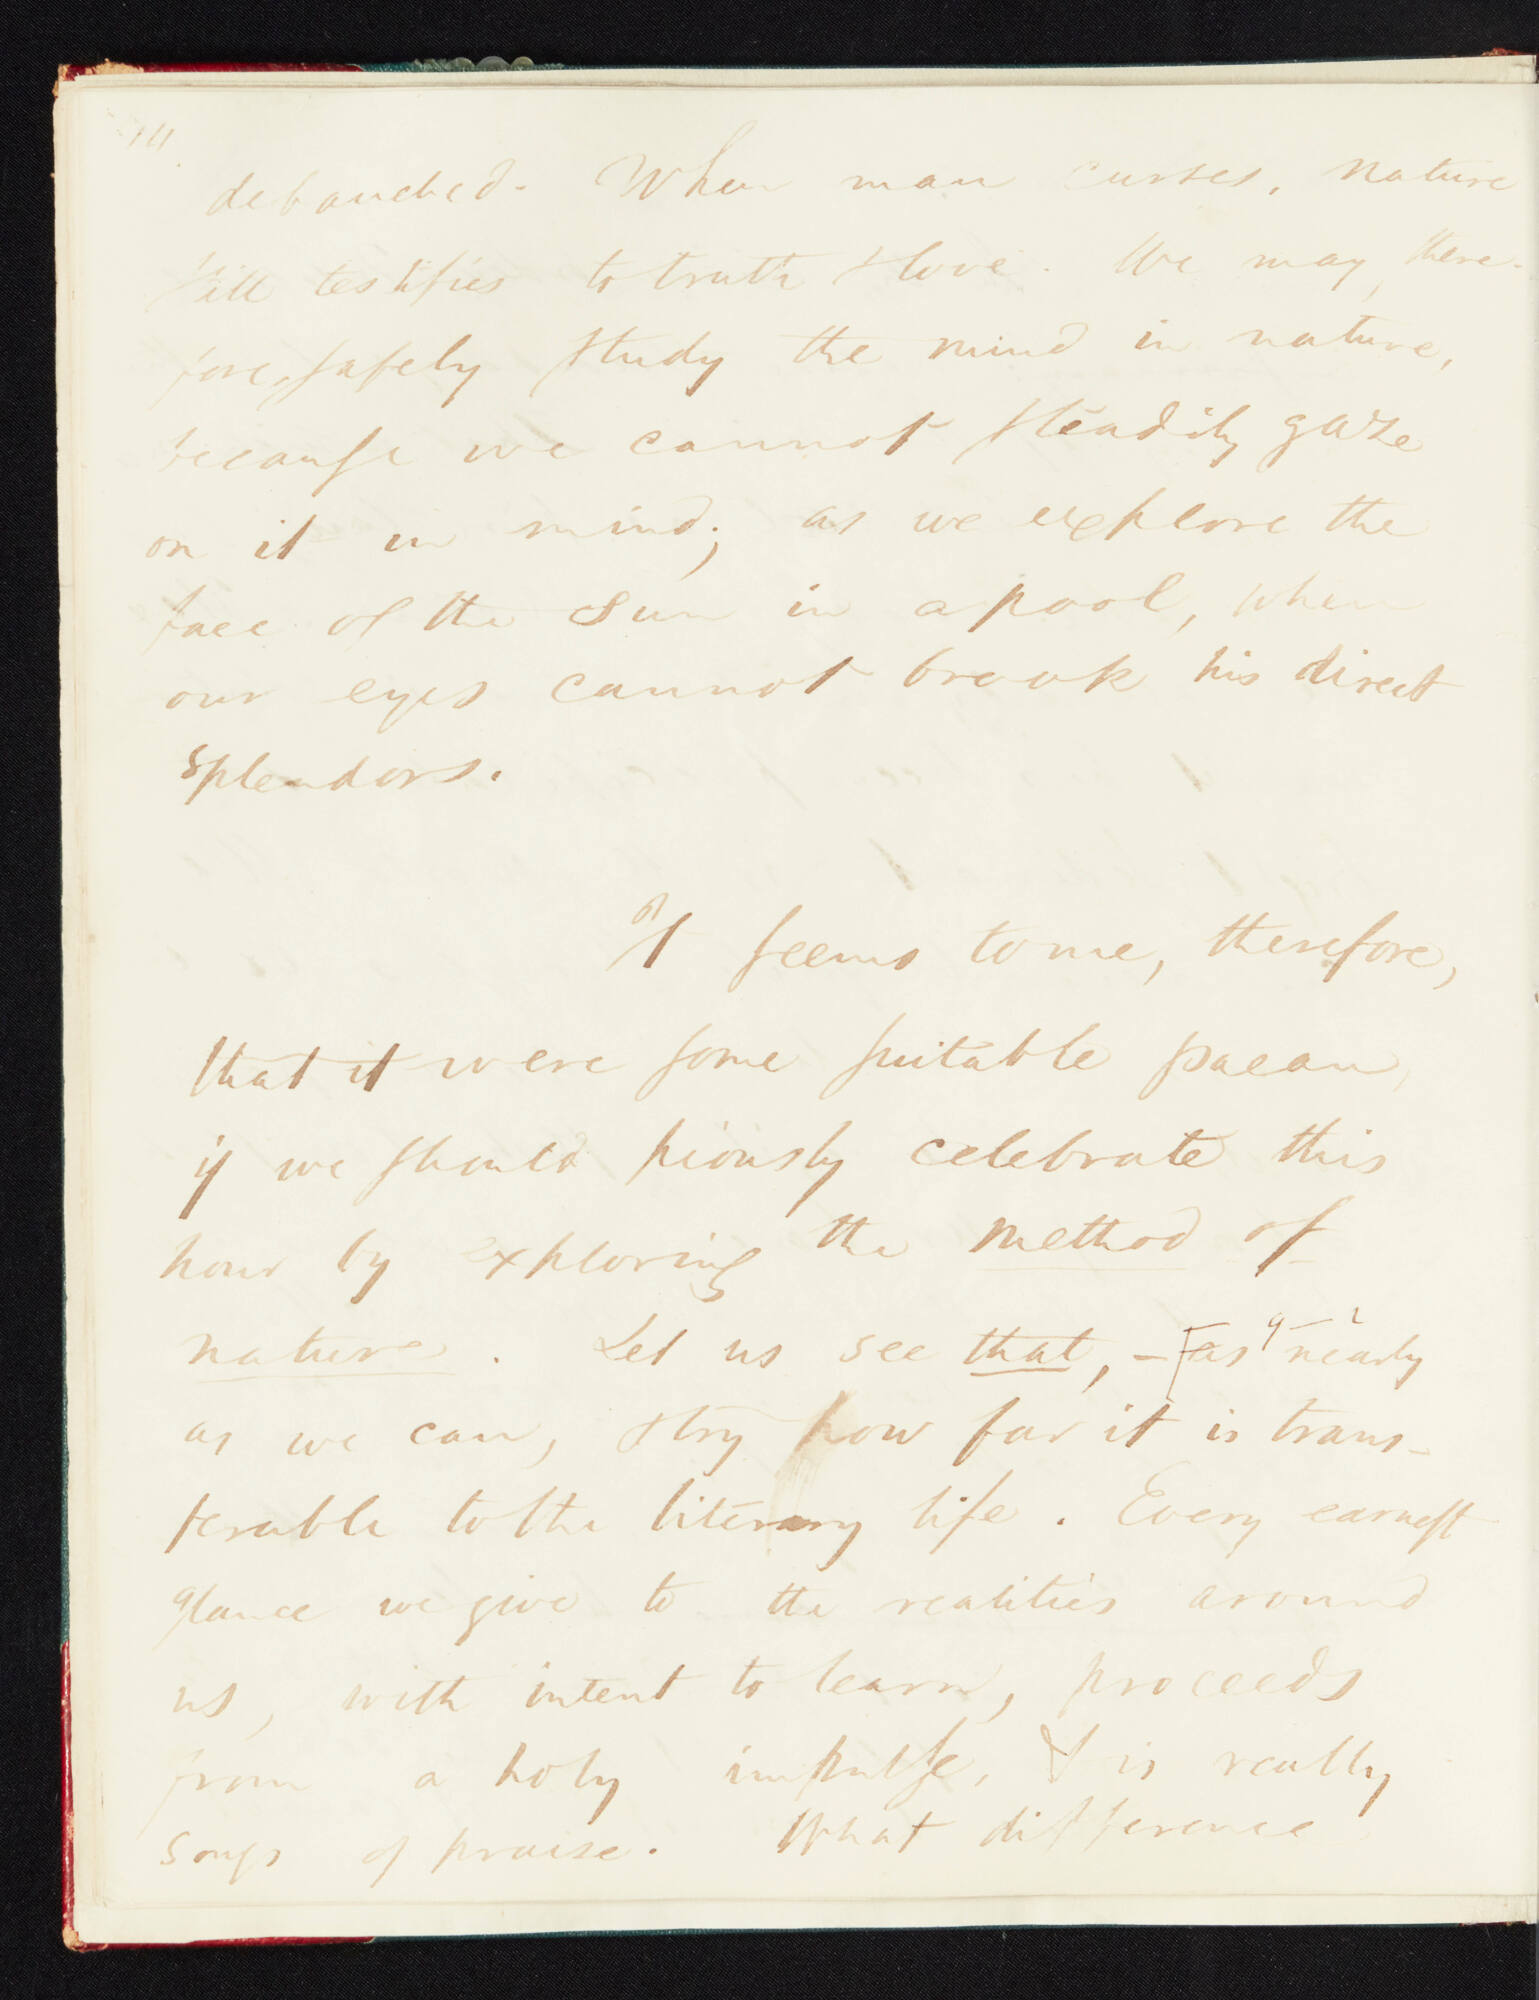 debauched. When man curses, nature
still testifies to truth & love. We may, there-
fore, safely study the mind in nature,
because we cannot steadily gaze
on it in mind; as we explore the
face of the sun in a pool, when
our eyes cannot brook his direct
splendors.
It seems to me, therefore,
that it were some suitable paean,
if we should piously celebrate this
hour by exploring the method of
nature. Let us see that, — [as nearly
as we can, & try how far it is trans-
ferable to the literary life. Every earnest
glance we give to the realities around
us, with intent to learn, proceeds
from a holy impulse, & is really
songs of praise. What difference